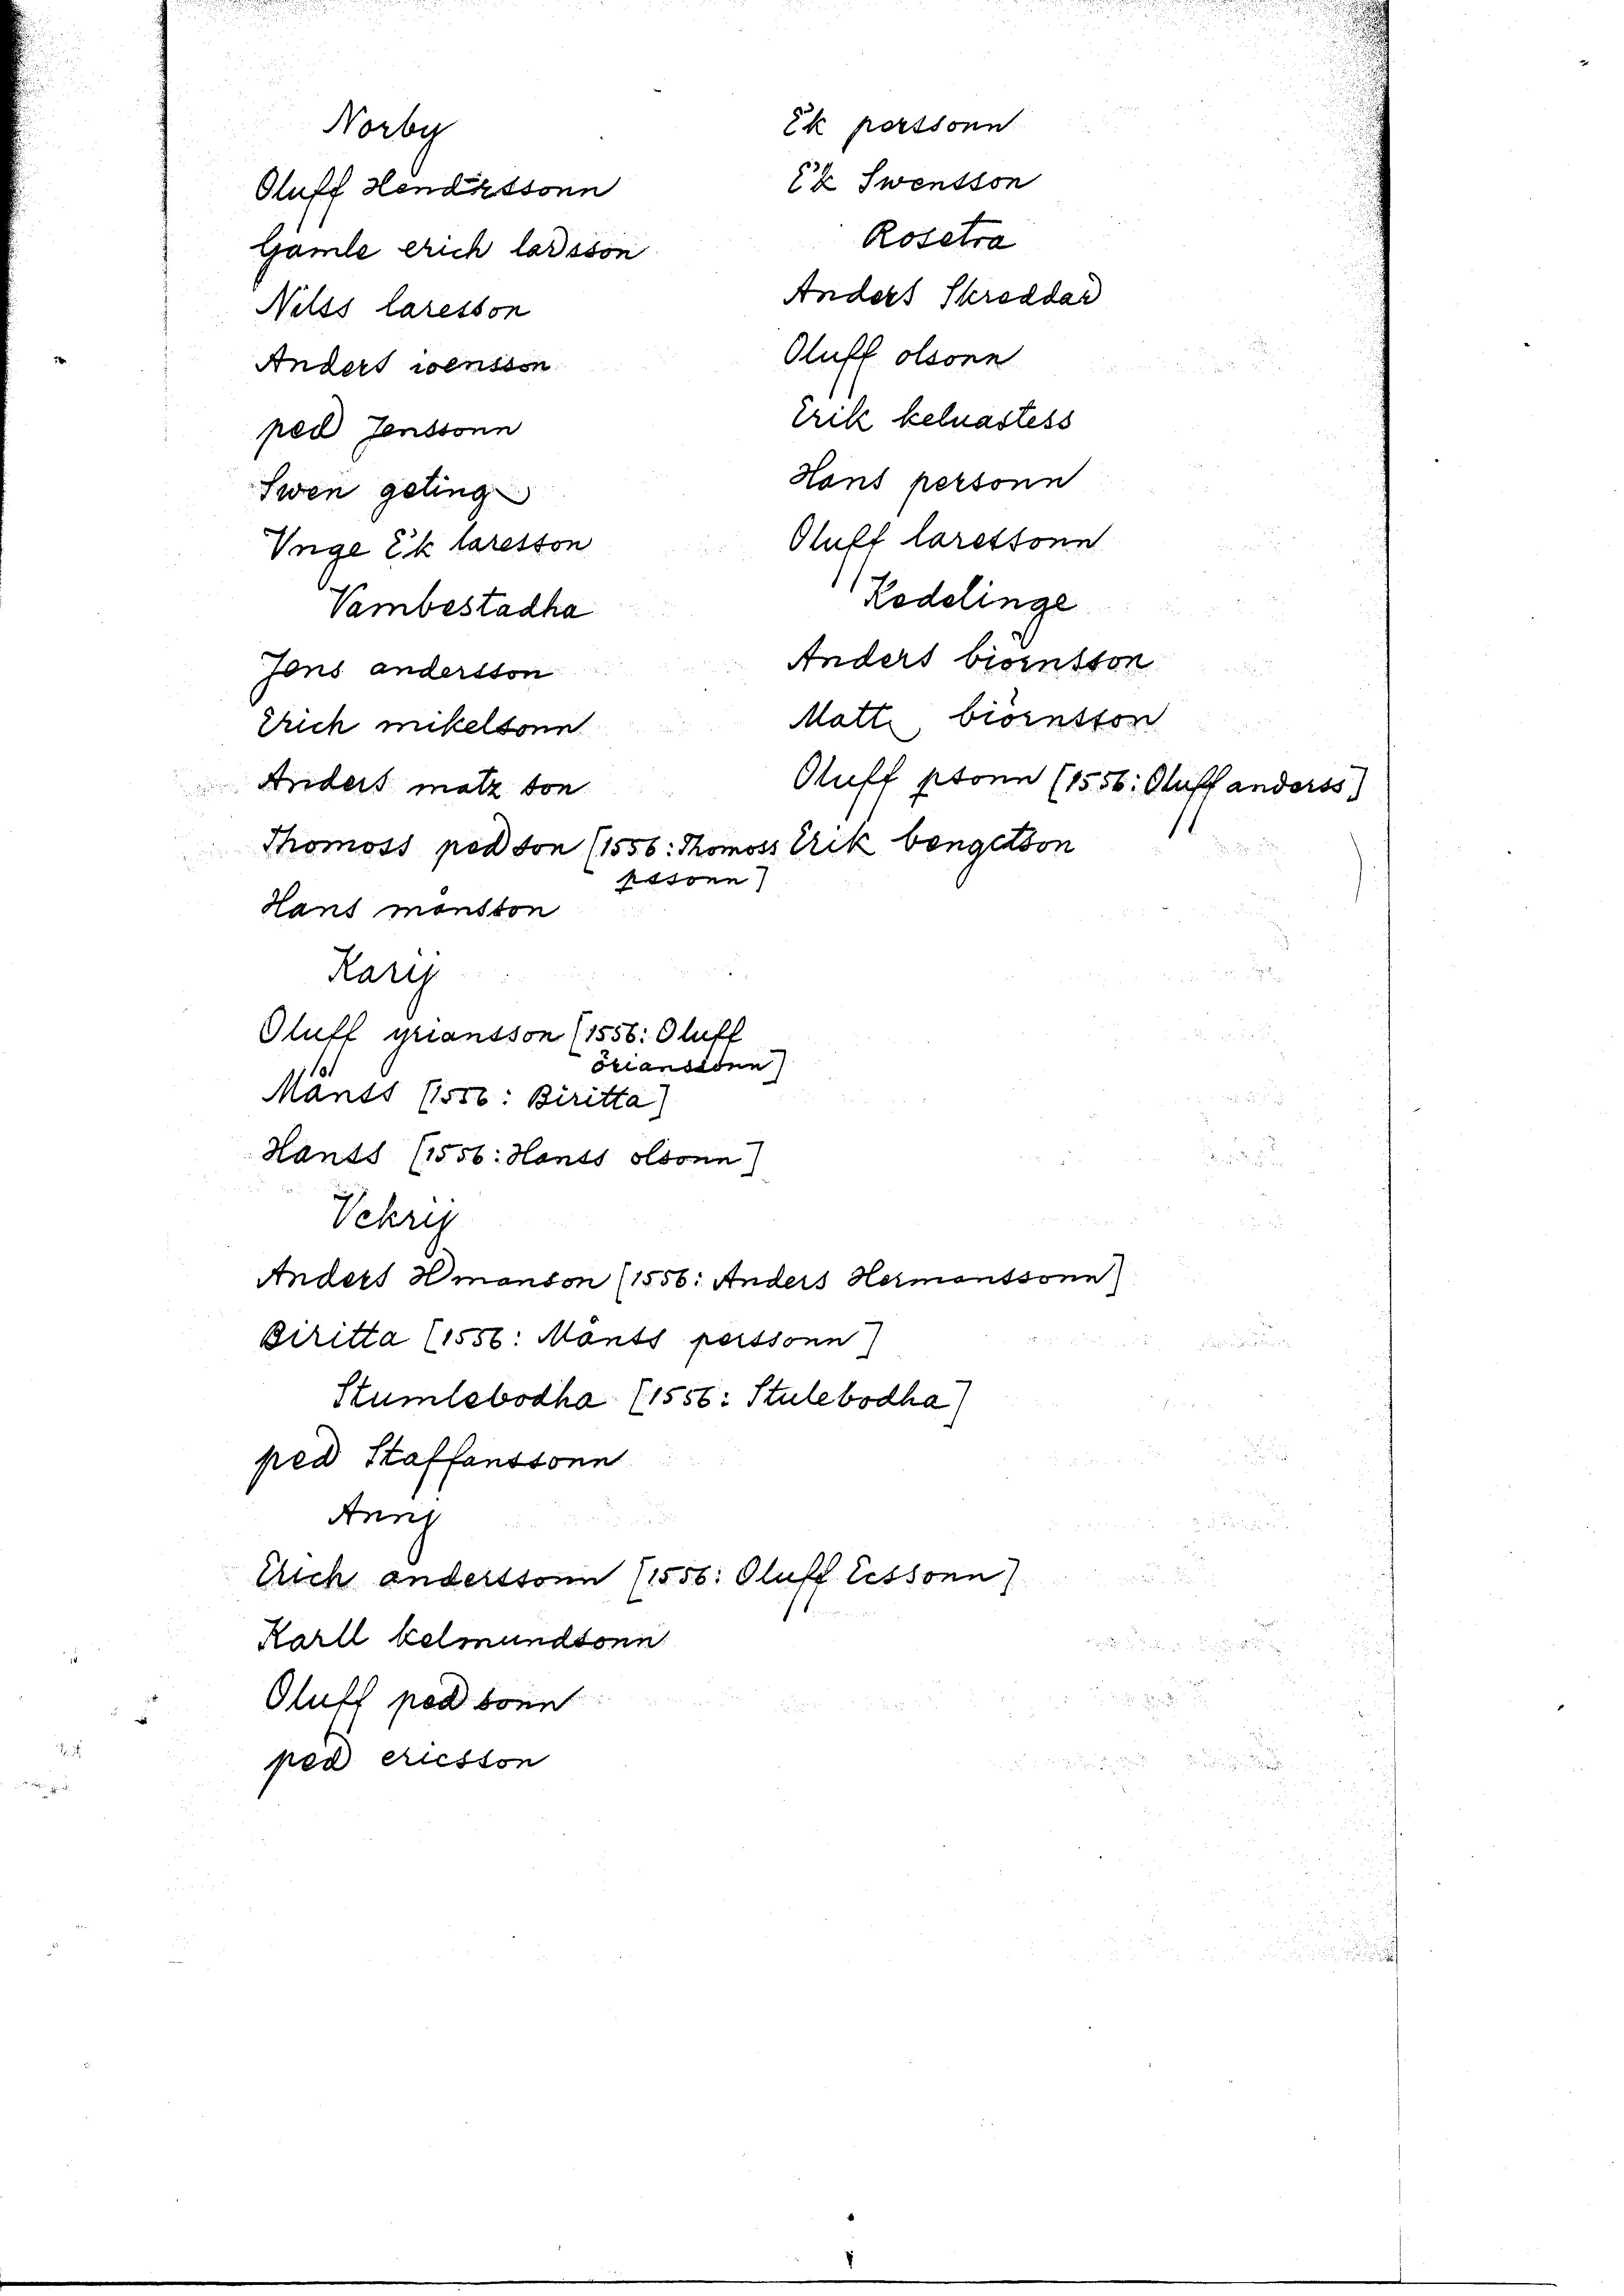 Norby
Oluff Hendirssonn
Gamle erich larsson
Nilss laresson
Anders wensson
ped Jenssonn
Swen geting
Vnge Ek laresson
Vambestadha
Jens andersson
Erich mikelsonn
Anders matz son
Thomoss ped son [1556: Thomoss
pssonn]
Hans månsson
Karij
Oluff yriansson [1556: Oluff
örianssonn]
Månss [1556: Biritta]
Hanss [1556: Hanss olsonn]
Vekrij
Anders Hmanson [1556: Anders Hermanssonn]
Biritta [1556: Månss perssonn]
Stumlebodha [1556: Stulebodha]
ped Staffanssonn
Annj
Erich anderssonn [1556: Oluff Ecssonn]
Karll kelmundsonn
Oluff ped sonn
ped ericsson
Ek perssonn
Ek Swensson
Rosetra
Anders Skreddar
Oluff olsonn
Erik keluastess
Hans personn
Oluff laressonn
Kedelinge
Anders biörnsson
Matts biörnsson
Oluff psonn [1556: Oluff anderss]
Erik bengtsson